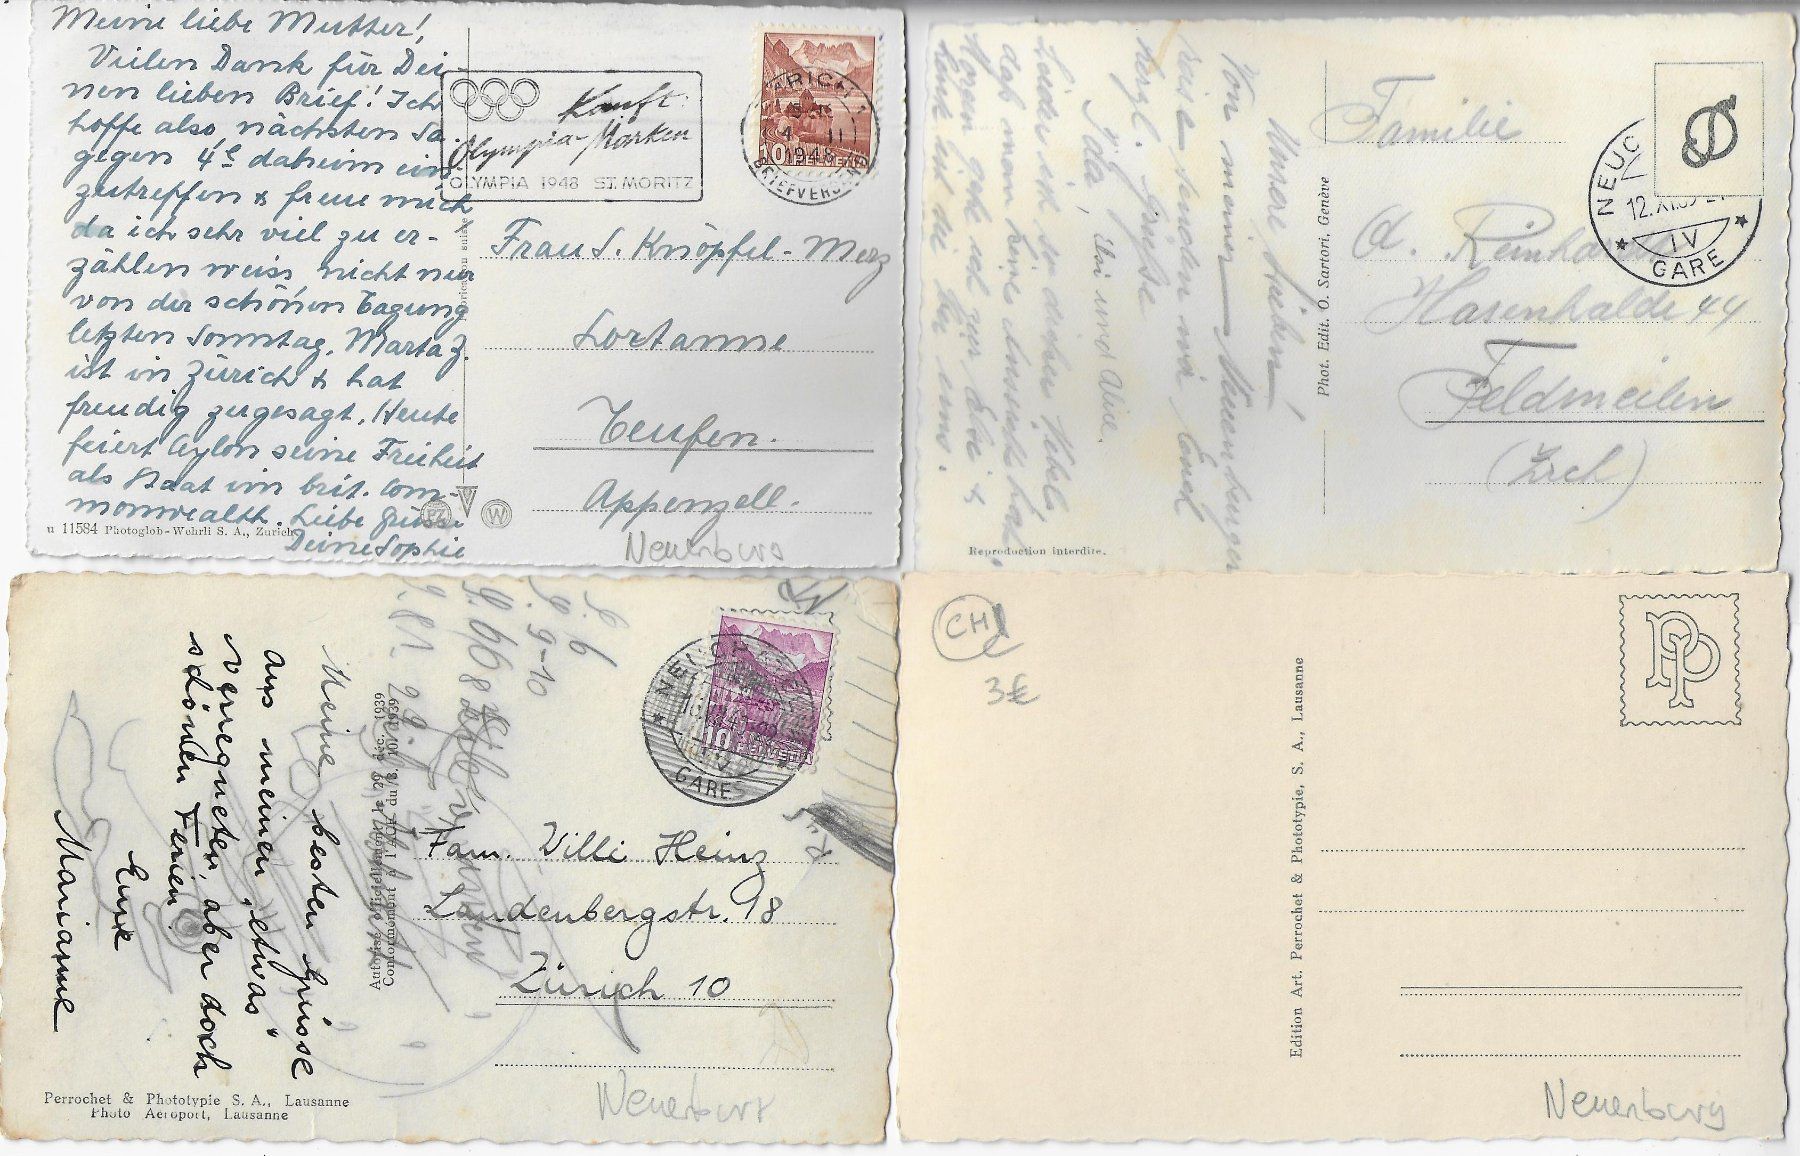 Meine liebe Mutter!
Vielen Dank für Dei-
nen lieben Brief! Ich
hoffe also, nächsten Sa.
gegen 4h daheim ein-
zutreffen & freue mich
da ich sehr viel zu er-
zählen weiss, nicht nur
von der schönen Tagung
letzten Sonntag. Marta Z.
ist in Zürich & hat
freudig zugesagt. Heute
feiert Ceylon seine Freiheit
als Staat im brit. Com-
monwealth. Liebe Grüsse
Deine Sophie
u 11584 Photoglob-Wehrli S. A., Zurich
Kauft
Olympia-Marken
OLYMPIA 1948 ST. MORITZ
4. II
1948
BRIEFVERSAND
10 HELVETIA
Frau S. Knöpfel-Merz
Lortanne
Teufen.
Appenzell.
PZ
W
Neuenburg
Unsere Lieben!
Von unserer Neuenburger
reise senden wir Euch
herzl. Grüsse
Ida, Ueli und Aline.
Leider ein so dicker Nebel
daß man keine Aussicht hat.
Reproduction interdite.
Phot. Edit. O. Sartori, Genève
NEUC
12.XI.
IV
GARE
Familie
A. Reinhardt
Hasenhalde 44
Feldmeilen
(Zrch)
Meine besten Grüsse
aus meinen „etwas“
verregneten, aber doch
schönen Ferien
Eure
Marianne
S. 6
S. 9-10
10 HELVETIA
GARE
Fam. Willi Heinz
Landenbergstr. 18
Zürich 10
Perrochet & Phototypie S. A., Lausanne
Photo Aéroport, Lausanne
Neuenburg
CH
3€
Edition Art. Perrochet & Phototypie, S. A., Lausanne
PP
Neuenburg